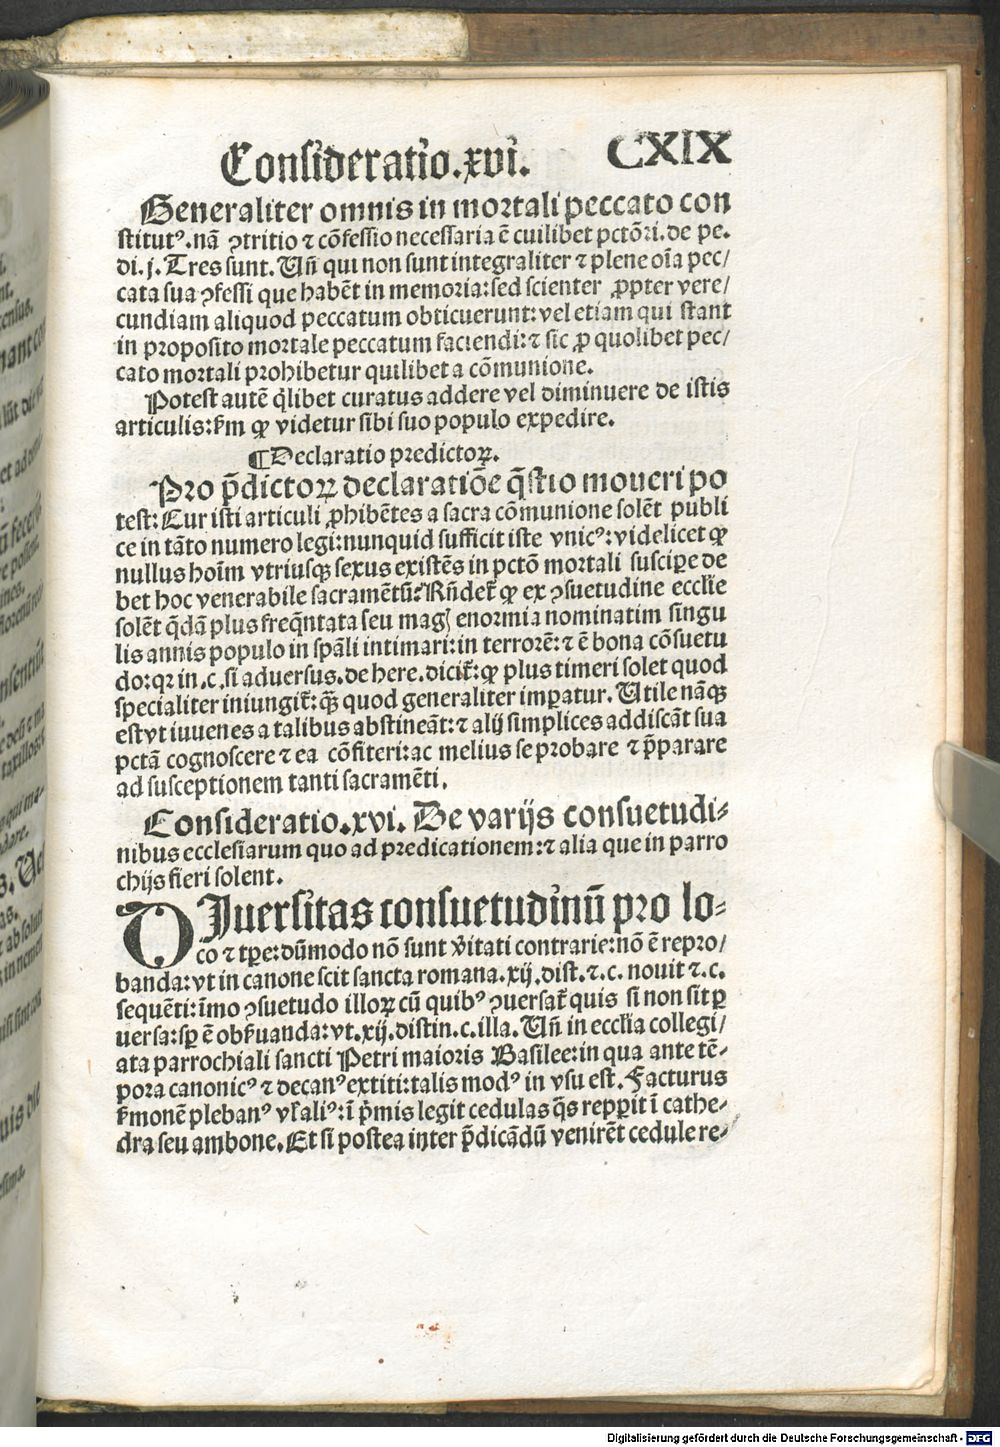 Consideratio.xvi. CXIX
Generaliter omnis in mortali peccato con
stitutꝰ.nã ꝯtritio ⁊ cõfessio necessaria ẽ cuilibet pctõri.de pe.
di.j.Tres sunt.Uñ qui non sunt integraliter ⁊ plene oĩa pec/
cata sua ꝯfessi que habẽt in memoria:sed scienter ꝓpter vere/
cundiam aliquod peccatum obticuerunt:vel etiam qui stant
in proposito mortale peccatum faciendi:⁊ sic ꝓ quolibet pec/
cato mortali prohibetur quilibet a cõmunione.
Potest autẽ q̃libet curatus addere vel diminuere de istis
articulis:ẜm ꝙ videtur sibi suo populo expedire.
¶Declaratio predictoꝝ.
Pro p̃dictoꝝ declaratiõe q̃stio moueri po
test:Cur isti articuli ꝓhibẽtes a sacra cõmunione solẽt publi
ce in tãto numero legi:nunquid sufficit iste vnicꝰ:videlicet ꝙ
nullus hoĩm vtriusqꝫ sexus existẽs in pctõ mortali suscipe de
bet hoc venerabile sacramẽtũ?Rñdet̃ ꝙ ex ꝯsuetudine ecclie
solẽt q̃dã plus freq̃ntata seu mag} enormia nominatim singu
lis annis populo in spãli intimari:in terrorẽ:⁊ ẽ bona cõsuetu
do:qꝛ in.c.si aduersus.de here.dicit̃:ꝙ plus timeri solet quod
specialiter iniungit̃:qꝫ̃ quod generaliter imꝑatur.Utile nãqꝫ
est vt iuuenes a talibus abstineãt:⁊ alij simplices addiscãt sua
pctã cognoscere ⁊ ea cõfiteri:ac melius se probare ⁊ p̃parare
ad susceptionem tanti sacramẽti.
Consideratio.xvi. De varijs consuetudi⸗
nibus ecclesiarum quo ad predicationem:⁊ alia que in parro
chijs fieri solent.
DIuersitas consuetudinũ pro lo⸗
co ⁊ tꝑe:dũmodo nõ sunt ṽitati contrarie:nõ ẽ repro/
banda:vt in canone scit sancta romana.xij.dist.⁊.c.nouit ⁊.c.
sequẽti:ĩmo ꝯsuetudo illoꝝ cũ quibꝰ ꝯuersat̃ quis si non sit ꝑ
uersa:sꝑ ẽ obẜuanda:vt.xij.distin.c.illa.Uñ in ecclia collegi/
ata parrochiali sancti Petri maioris Basilee:in qua ante tẽ⸗
pora canonicꝰ ⁊ decanꝰ extiti:talis modꝰ in vsu est.Facturus
ẜmonẽ plebanꝰ vl̃ aliꝰ:ĩ p̃mis legit cedulas q̃s repꝑit ĩ cathe⸗
dra seu ambone.Et si postea inter p̃dicãdũ venirẽt cedule re⸗
Digitalisierung gefördert durch die Deutsche Forschungsgemeinschaft - DFG